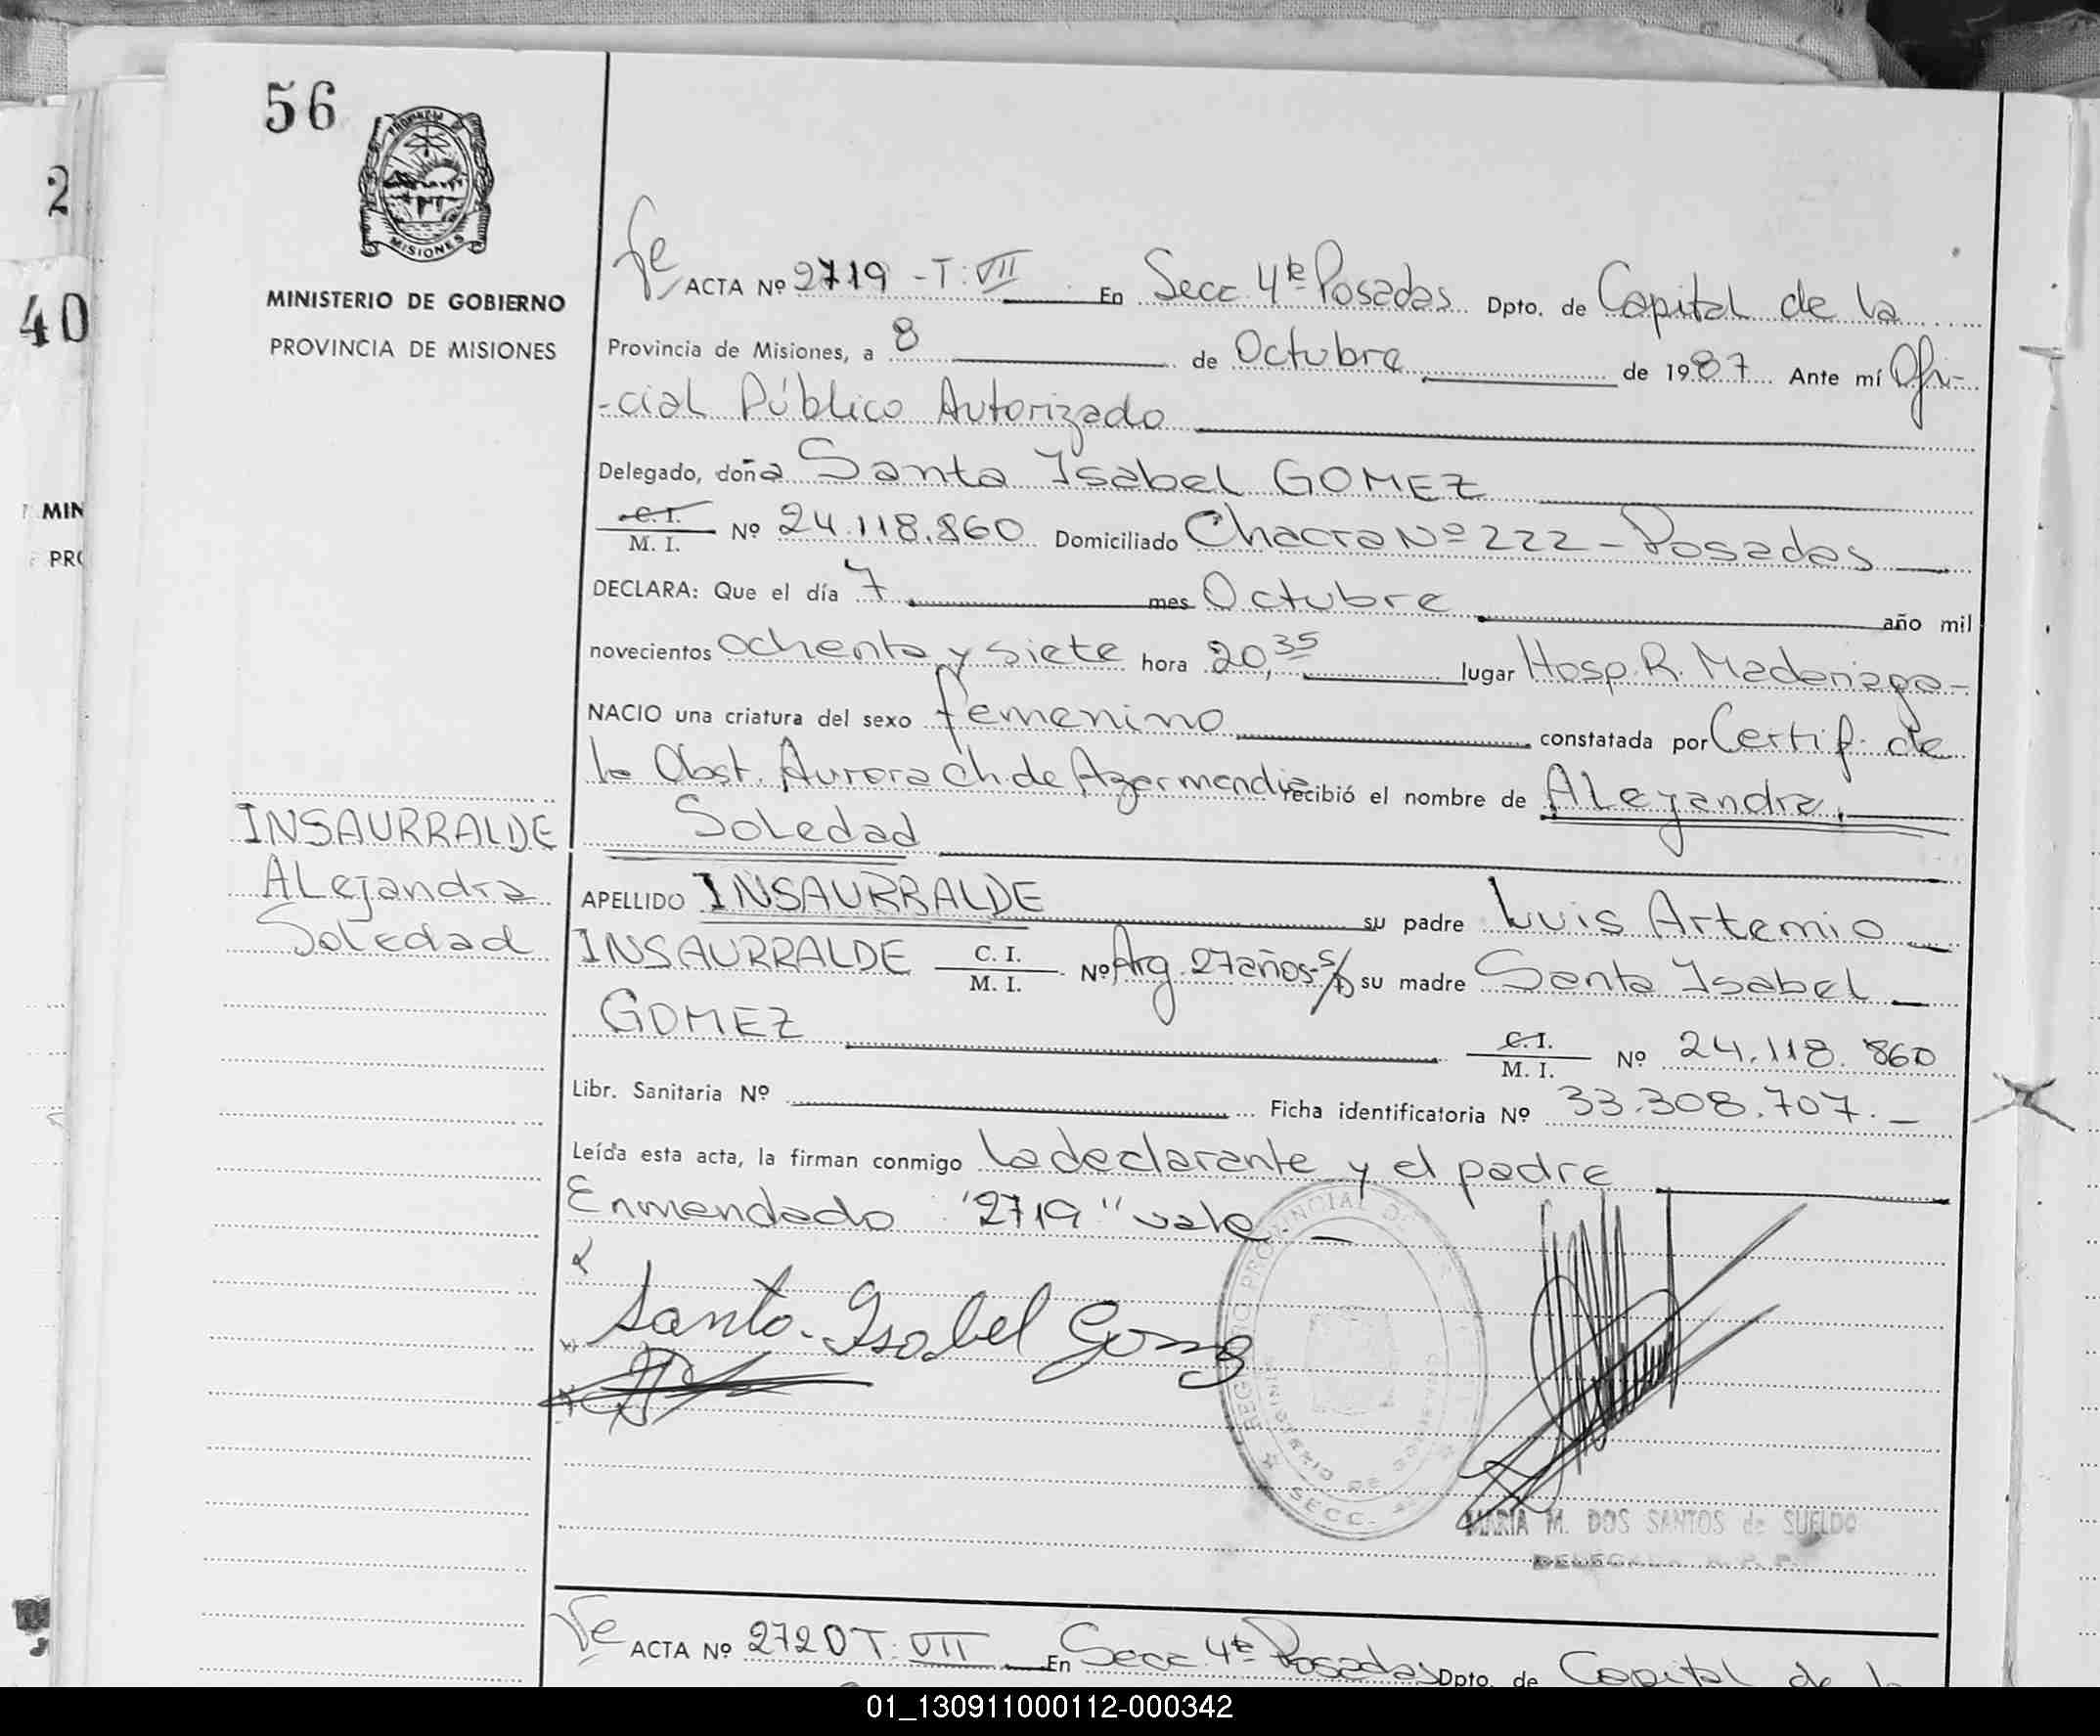 56
PROVINCIA DE
MISIONES
MINISTERIO DE GOBIERNO
PROVINCIA DE MISIONES
2
40
MIN
PRO
Fe ACTA Nº 2719 - T: VII En Secc. 4ta Posadas Dpto. de Capital de la
Provincia de Misiones, a 8 de Octubre de 1987 Ante mí Ofi-
-cial Público Autorizado
Delegado, doña Santa Isabel GOMEZ
C. I. / M. I. Nº 24.118.860 Domiciliado Chacra Nº 222 - Posadas
DECLARA: Que el día 7 mes Octubre año mil
novecientos ochenta y siete hora 20,35 lugar Hosp. R. Madariaga-
NACIO una criatura del sexo femenino constatada por Certif. de
la Obst. Aurora Ch. de Azarmendia recibió el nombre de ALejandra
Soledad
INSAURRALDE
ALejandra
Soledad
APELLIDO INSAURRALDE su padre Luis Artemio
INSAURRALDE C. I. / M. I. Nº Arg. 27 años-s/D su madre Santa Isabel
GOMEZ C. I. / M. I. Nº 24.118.860
Libr. Sanitaria Nº Ficha identificatoria Nº 33.308.707.-
Leída esta acta, la firman conmigo la declarante y el padre
Enmendado "2719" vale.-
Santa Isabel Gomez
REGISTRO PROVINCIAL DE
MINISTERIO DE GOBIERNO
SECC. 4ª
MARIA M. DOS SANTOS de SUELDO
DELEGADA R. P. P.
Fe ACTA Nº 2720 T: VII En Secc 4ta Posadas Dpto. de Capital de l
01_130911000112-000342